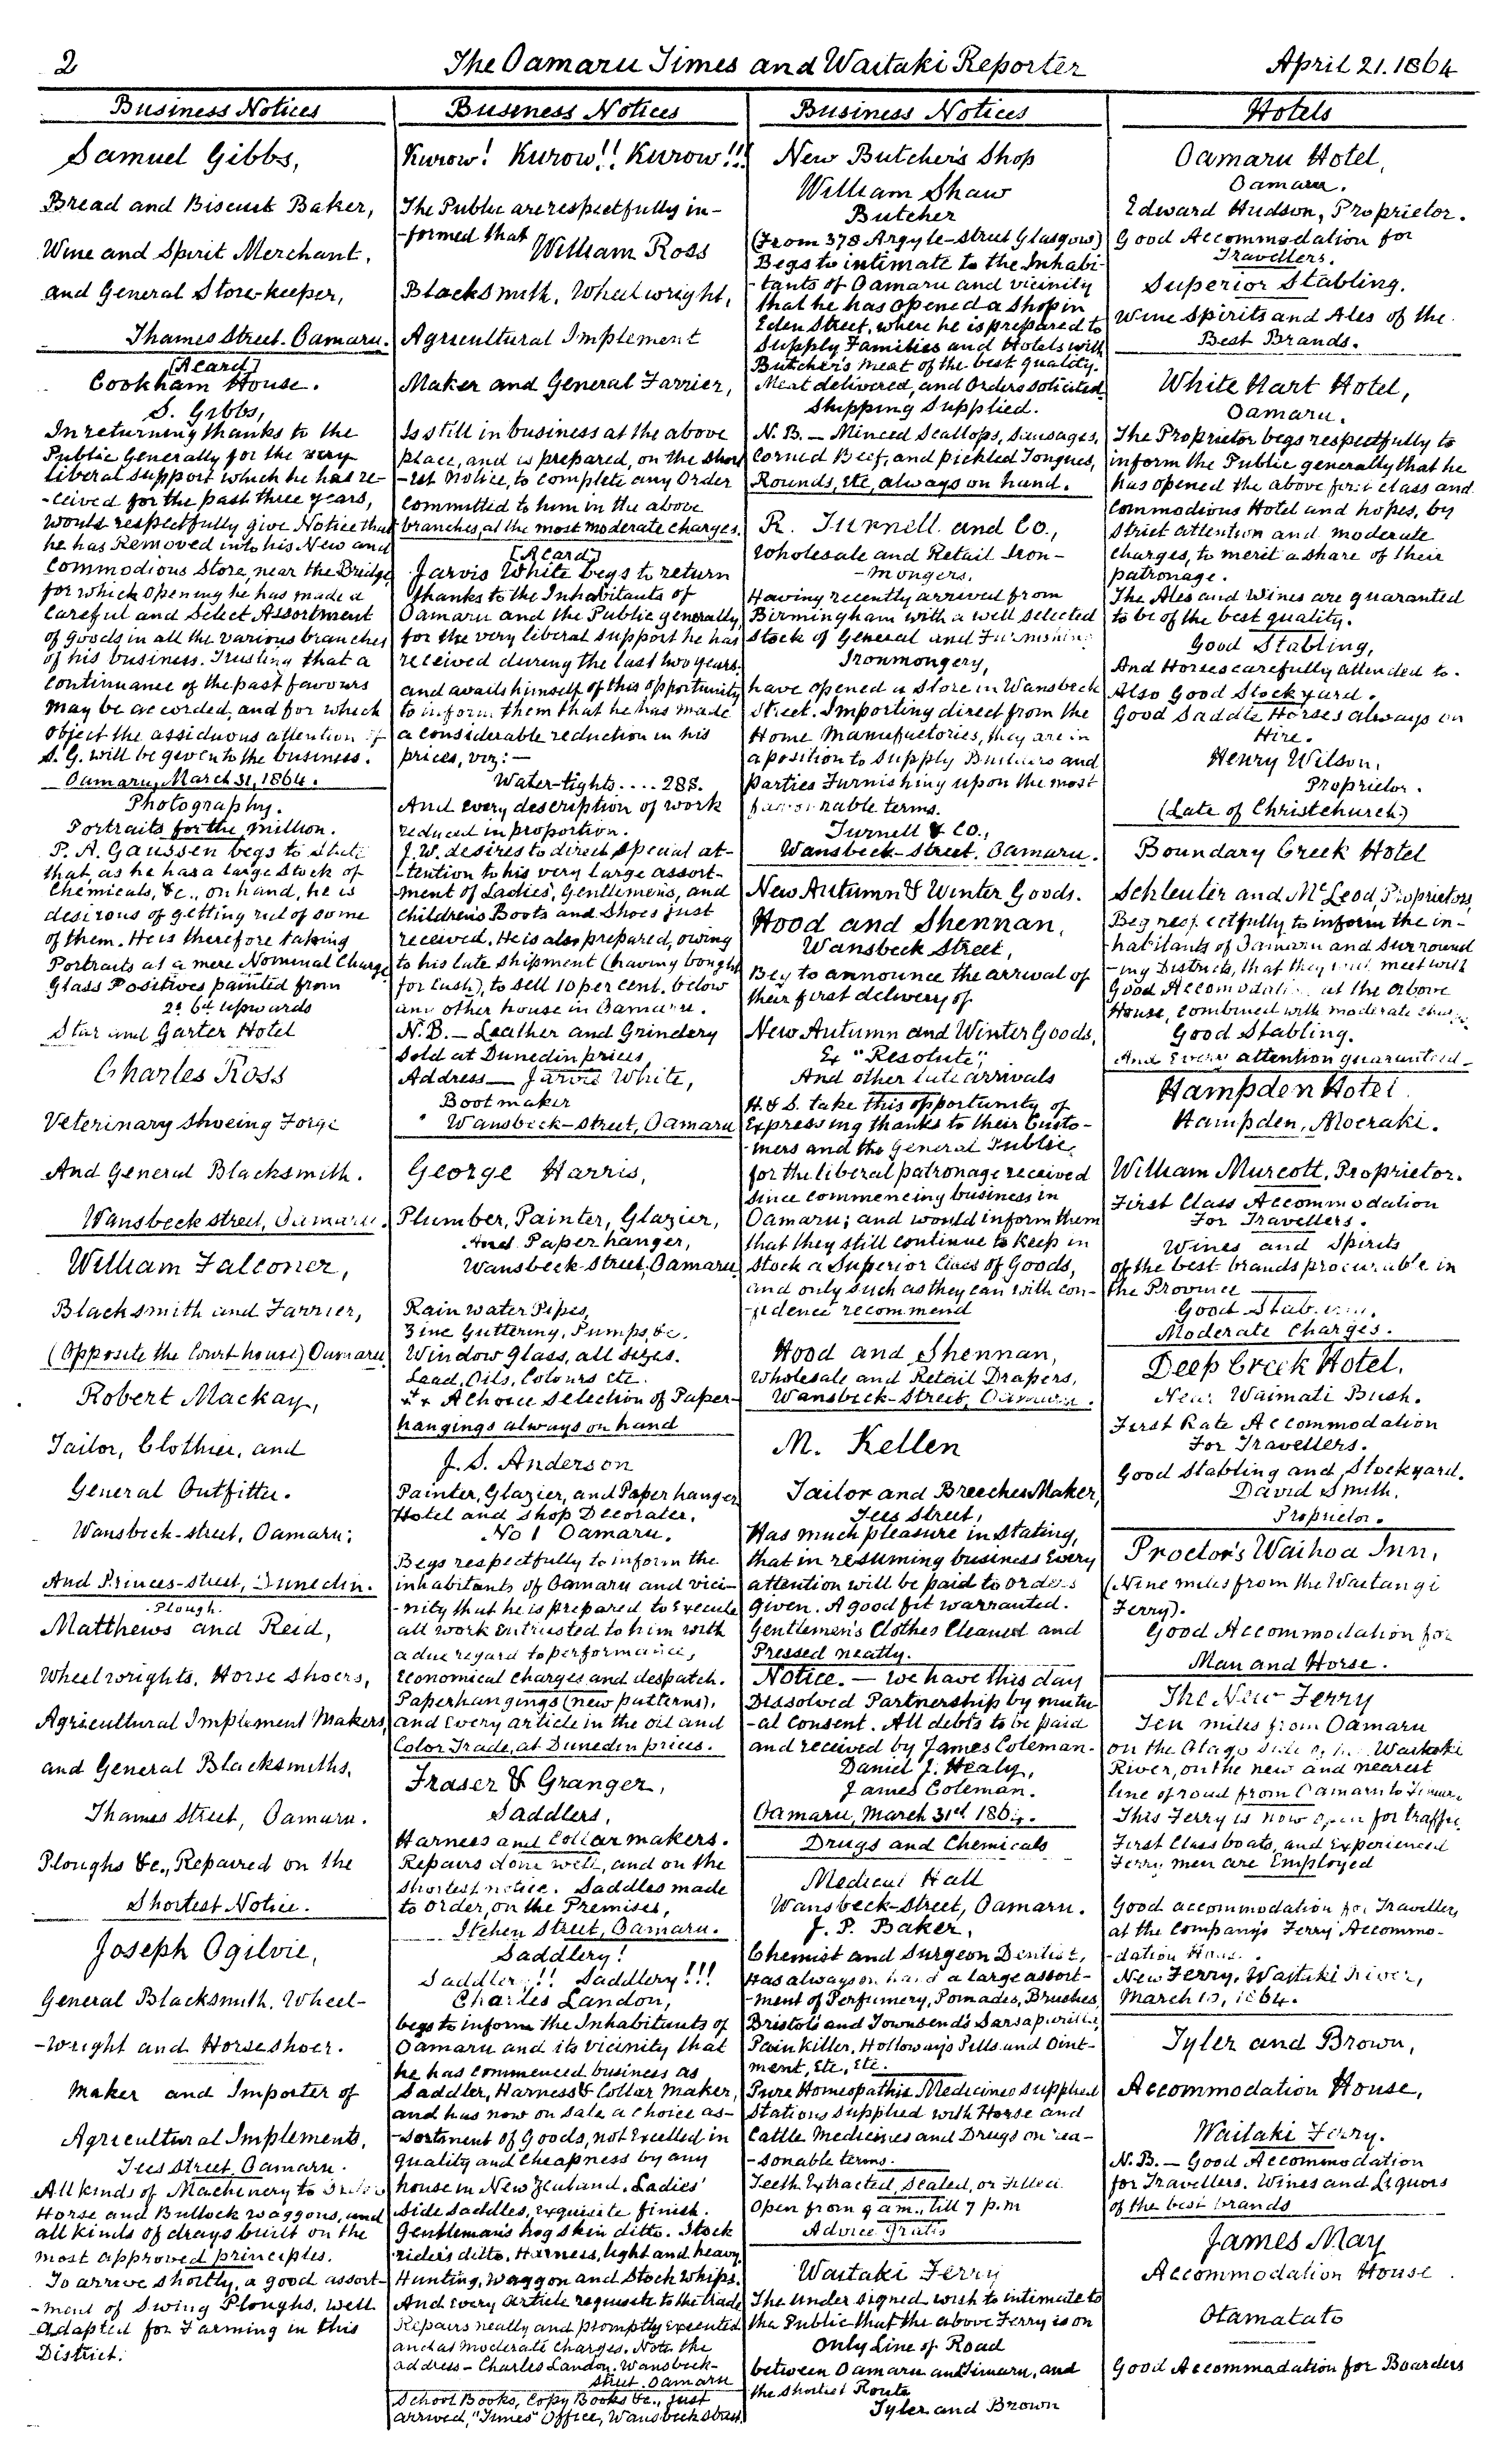 2
The Oamaru Times and Waitaki Reporter
April 21. 1864
Business Notices
Samuel Gibbs,
Bread and Biscuit Baker,
Wine and Spirit Merchant,
and General Storekeeper,
Thames Street. Oamaru.
(A card)
Cookham House.
S. Gibbs,
In returning thanks to the
Public Generally for the very
liberal support which he has re-
-ceived for the past three years,
would respectfully give Notice that
he has Removed into his New and
Commodious Store, near the Bridge,
for which opening he has made a
Careful and Select Assortment
of goods in all the various branches
of his business. Trusting that a
continuance of the past favours
may be accorded, and for which
object the assiduous attention of
S. G. will be given to the business.
Oamaru, March 31, 1864.
Photography.
Portraits for the million.
P. A. Gaussen begs to state
that, as he has a large Stock of
Chemicals, &c., on hand, he is
desirous of getting rid of some
of them. He is therefore taking
Portraits at a mere Nominal Charge
Glass Positives painted from
2s 6d upwards
Star and Garter Hotel
Charles Ross
Veterinary Shoeing Forge
And General Blacksmith.
Wansbeck street, Oamaru.
William Falconer,
Blacksmith and Farrier,
(Opposite the Court house) Oamaru
Robert Mackay,
Tailor, Clothier, and
General Outfitter.
Wansbeck-street, Oamaru;
And Princes-street, Dunedin.
Plough.
Matthews and Reid,
Wheelwrights, Horse Shoers,
Agricultural Implement Makers
and General Blacksmiths,
Thames Street, Oamaru.
Ploughs &c., Repaired on the
Shortest Notice.
Joseph Ogilvie,
General Blacksmith, Wheel-
-wright and Horseshoer.
Maker and Importer of
Agricultural Implements,
Tees Street, Oamaru.
All kinds of Machinery to Order
Horse and Bullock waggons, and
all kinds of drays built on the
most approved principles.
To arrive shortly, a good assort-
-ment of Swing Ploughs, well
adapted for Farming in this
District.
Business Notices
Kurow! Kurow!! Kurow!!!
The Public are respectfully in-
-formed that
William Ross
Blacksmith, Wheelwright,
Agricultural Implement
Maker and General Farrier,
Is still in business at the above
place, and is prepared, on the short
-est notice, to complete any Order
committed to him in the above
branches, at the most moderate charges.
(A card)
Jarvis White begs to return
thanks to the Inhabitants of
Oamaru and the Public generally,
for the very liberal support he has
received during the last two years.
and avails himself of this opportunity
to inform them that he has made
a considerable reduction in his
prices, viz:—
Water-tights.... 28s.
And every description of work
reduced in proportion.
J. W. desires to direct special at-
-tention to his very large assort-
-ment of Ladies', Gentlemen's, and
Children's Boots and Shoes just
received. He is also prepared, owing
to his late shipment (having bought
for Cash), to sell 10 per cent. below
any other house in Oamaru.
N.B.— Leather and Grindery
sold at Dunedin prices
Address— Jarvis White,
Bootmaker
Wansbeck-street, Oamaru
George Harris,
Plumber, Painter, Glazier,
And Paper hanger,
Wansbeck-Street, Oamaru
Rain water Pipes,
Zinc Guttering, Pumps, &c.
Window Glass, all sizes.
Lead, Oils, Colours etc.
A Choice selection of Paper-
hangings always on hand
J. S. Anderson
Painter, Glazier, and Paper hanger
Hotel and Shop Decorater.
No 1 Oamaru.
Begs respectfully to inform the
inhabitants of Oamaru and vici-
-nity that he is prepared to Execute
all work entrusted to him with
a due regard to performance,
Economical charges and despatch.
Paperhangings (new patterns),
and every article in the oil and
Color Trade, at Dunedin prices.
Fraser & Granger,
Saddlers,
Harness and Collar makers.
Repairs done well, and on the
shortest notice. Saddles made
to order, on the Premises,
Itchen Street, Oamaru.
Saddlery!
Saddlery!! Saddlery!!!
Charles Landon,
begs to inform the Inhabitants of
Oamaru and its vicinity that
he has commenced business as
Saddler, Harness & Collar Maker,
and has now on sale a choice as-
-sortment of Goods, not Excelled in
quality and cheapness by any
house in New Zealand. Ladies'
Side Saddles, exquisite finish.
Gentleman's hogskin ditto. Stock
rider's ditto. Harness, light and heavy
Hunting, Waggon and Stock Whips.
And every article requisite to the trade
Repairs neatly and promptly executed
and at moderate charges. Note the
address— Charles Landon, Wansbeck-
street. Oamaru
School Books, Copy Books &c., just
arrived, "Times" Office, Wansbeck street
Business Notices
New Butcher's Shop
William Shaw
Butcher
(From 378 Argyle-Street Glasgow)
Begs to intimate to the Inhabi-
-tants of Oamaru and vicinity
that he has opened a Shop in
Eden Street, where he is prepared to
Supply Families and Hotels with
Butcher's meat of the best quality.
Meat delivered, and Orders solicited
Shipping Supplied.
N. B.— Minced Scallops, Sausages,
Corned Beef, and pickled Tongues,
Rounds, etc, always on hand.
R. Turnell and Co.,
Wholesale and Retail Iron-
-mongers.
Having recently arrived from
Birmingham with a well selected
stock of General and Furnishing
Ironmongery,
have opened a store in Wansbeck
Street. Importing direct from the
Home Manufactories, they are in
a position to Supply Builders and
parties Furnishing upon the most
favorable terms.
Turnell & Co.,
Wansbeck-Street. Oamaru.
New Autumn & Winter Goods.
Hood and Shennan,
Wansbeck Street,
Beg to announce the arrival of
their first delivery of
New Autumn and Winter Goods,
Ex "Resolute",
And other late arrivals
H. & S. take this opportunity of
Expressing thanks to their Custo-
-mers and the General Public,
for the liberal patronage received
since commencing business in
Oamaru; and would inform them
that they still continue to keep in
stock a Superior Class of Goods,
and only such as they can with con-
-fidence recommend
Hood and Shennan,
Wholesale and Retail Drapers,
Wansbeck-Street, Oamaru.
M. Kellen
Tailor and Breeches Maker,
Tees Street,
Has much pleasure in stating,
that in resuming business Every
attention will be paid to orders
given. A good fit warranted.
Gentlemen's Clothes Cleaned and
Pressed neatly.
Notice.— We have this day
Dissolved Partnership by mutu
-al consent. All debts to be paid
and received by James Coleman.
Daniel J. Healy,
James Coleman.
Oamaru, March 31st 1864.
Drugs and Chemicals
Medical Hall
Wansbeck-Street, Oamaru.
J. P. Baker,
Chemist and Surgeon Dentist,
Has always on hand a large assort-
-ment of Perfumery, Pomades, Brushes,
Bristol's and Townsend's Sarsaparilla,
Pain Killer, Holloway's Pills and Oint-
ment, Etc, Etc.
Pure Homeopathic Medicines supplied
Stations supplied with Horse and
Cattle Medicines and Drugs on rea-
-sonable terms.
Teeth Extracted, Scaled, or Filled
Open from 9 am., till 7 p.m
Advice Gratis
Waitaki Ferry
The undersigned wish to intimate to
the Public that the above Ferry is on
Only Line of Road
between Oamaru and Timaru, and
the shortest Route
Tyler and Brown
Hotels
Oamaru Hotel,
Oamaru.
Edward Hudson, Proprietor.
Good Accommodation for
Travellers.
Superior Stabling.
Wine Spirits and Ales of the
Best Brands.
White Hart Hotel,
Oamaru.
The Proprietor begs respectfully to
inform the Public generally that he
has opened the above first class and
Commodious Hotel and hopes, by
strict attention and moderate
charges, to merit a share of their
patronage.
The Ales and Wines are guaranted
to be of the best quality.
Good Stabling,
And Horses carefully attended to.
Also Good Stockyard.
Good Saddle Horses always on
Hire.
Henry Wilson,
Proprietor.
(Late of Christchurch)
Boundary Creek Hotel
Schleuter and McLeod, Proprietors,
Beg respectfully to inform the in-
-habitants of Oamaru and surround
-ing Districts, that they will meet with
Good Accomodation at the above
House, combined with moderate charges
Good Stabling.
And Every attention guarantied-
Hampden Hotel
Hampden, Moeraki.
William Murcott, Proprietor.
First Class Accommodation
For Travellers.
Wines and Spirits
of the best brands procurable in
the Province
Good Stabling.
Moderate Charges.
Deep Creek Hotel.
Near Waimati Bush.
First Rate Accommodation
For Travellers.
Good Stabling and Stockyard.
David Smith,
Proprietor.
Proctor's Waihoa Inn,
(Nine miles from the Waitangi
Ferry).
Good Accommodation for
Man and Horse.
The New Ferry
Ten miles from Oamaru
on the Otago side of the Waitaki
River, on the new and nearest
line of road from Oamaru to Timaru
This Ferry is now open for traffic
First Class boats, and Experienced
Ferry men are Employed
Good accommodation for Travellers
at the Company's Ferry Accommo-
-dation House.
New Ferry, Waitaki River,
March 10, 1864.
Tyler and Brown,
Accommodation House,
Waitaki Ferry.
N.B.— Good Accommodation
for Travellers. Wines and Liquors
of the best brands
James May
Accommodation House
Otamatato
Good Accommadation for Boarders